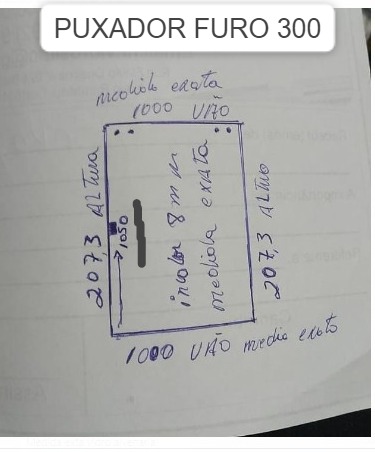 PUXADOR FURO 300
medida exata
1000 VÃO
207,3 ALTURA
1050
incolor 8 mm
medida exata
207,3 ALTURA
1000 VÃO medida exata